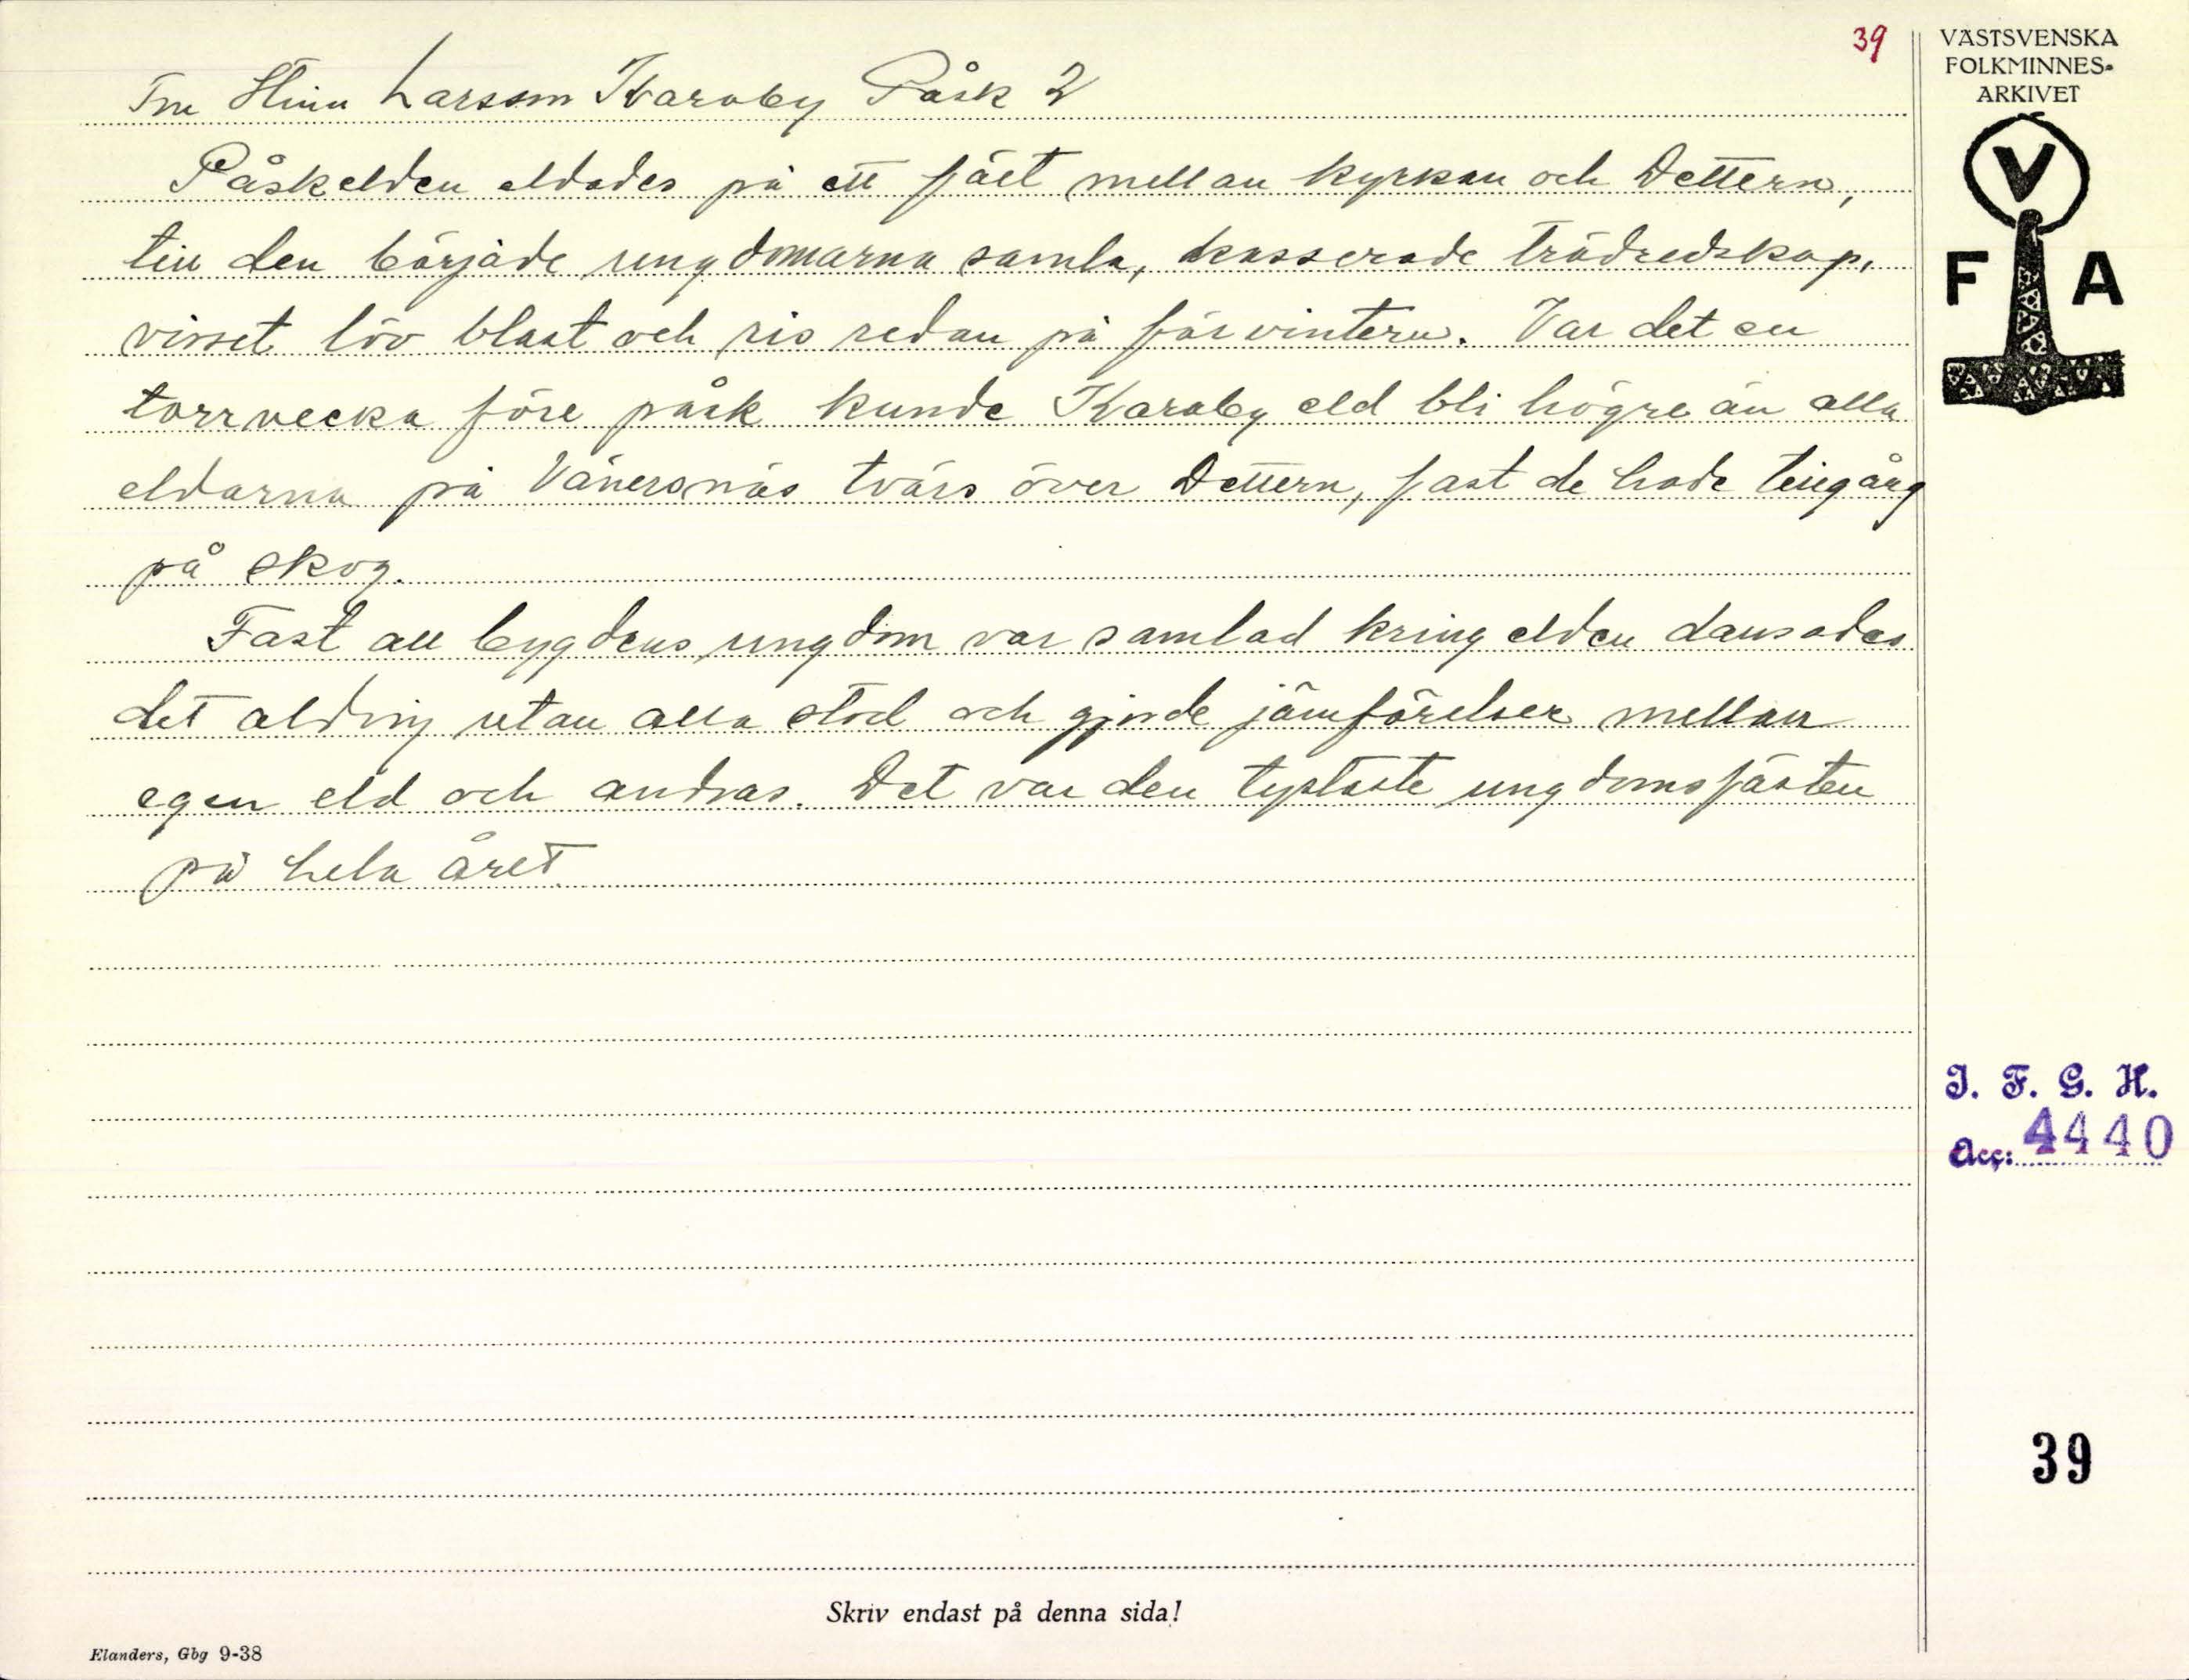 39
Fru Stina Larsson Karaby Påsk 2
Påskelden eldades på ett fält mellan kyrkan och Dettern,
till den började ungdomarna samla, kasserade trädredskap,
visset löv blast och ris redan på förvintern. Var det en
torrvecka före påsk kunde Karaby eld bli högre än alla
eldarna på Vänersnäs tvärs över Dettern, fast de hade tillgång
på skog.
Fast all bygdens ungdom var samlad kring elden dansades
det aldrig utan alla stod och gjorde jämförelser mellan
egen eld och andras. Det var den tystaste ungdomsfästen
på hela året
VÄSTSVENSKA
FOLKMINNES-
ARKIVET
V
F A
I. F. G. H.
Acc: 4440
39
Skriv endast på denna sida!
Elanders, Gbg 9-38